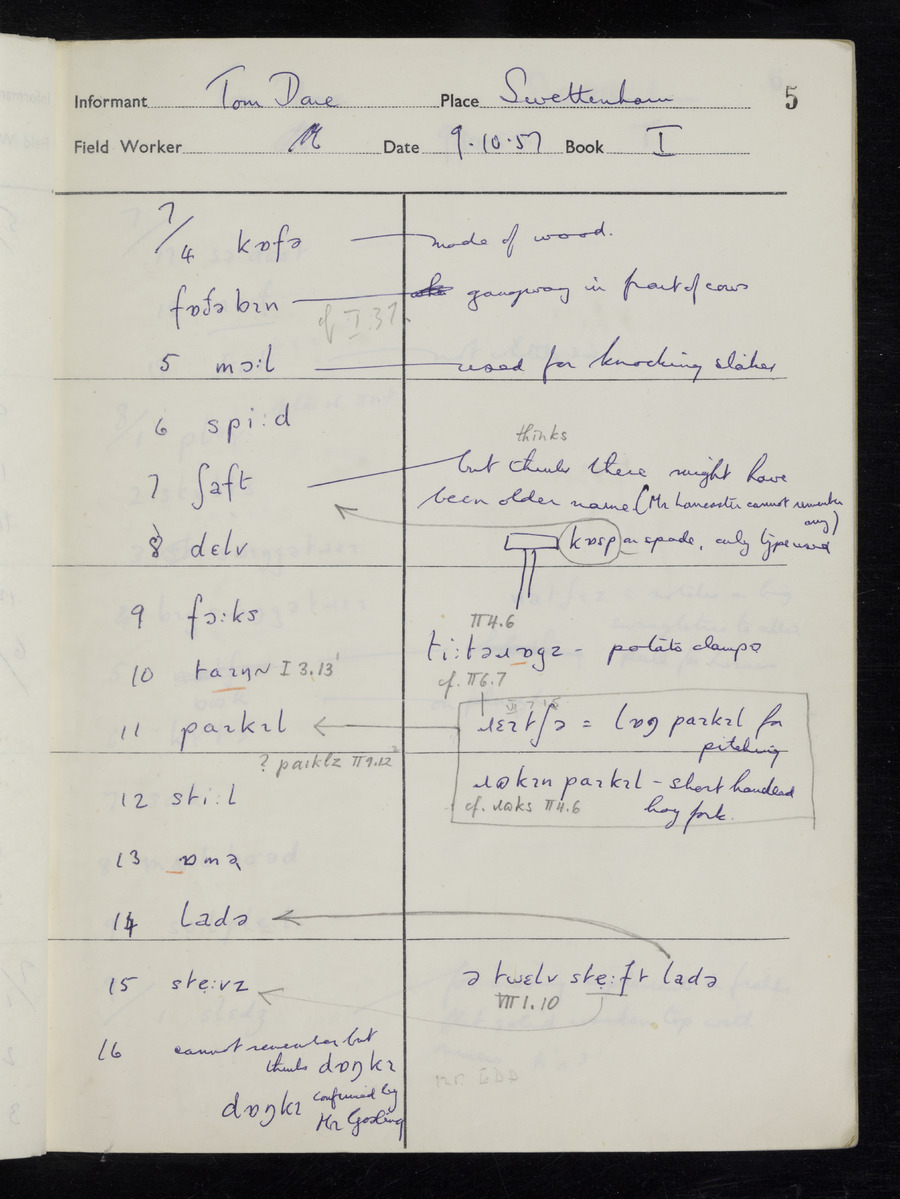 Informant Tom Dave Place Swettenham 5
Field Worker Date 9.10.57 Book I
7/4 kɒfə made of wood.
fɒðəbɪn gangway in front of cows
cf I.3.
5 mɔ:l used for knocking stakes
6 spi:d
thinks
7 ʃaft but thinks there might have
been older name (Mr Lancaster cannot remember
any)
8 dɛlv kɒsp on spade, only type used
9 fɔ:ks
II 4.6
ti:təɹɒgz - potato clamps
10 I 3.13
cf. II 6.7
11 paɪkɪl ɹɛɪtʃə = lɒg paɪkɪl for
pitching
? paɪklz II 9.12
12 sti:l ɹɷkɪn paɪkɪl - short handled
cf. ɹɷks II 4.6 hay fork.
13 ɒmə
14 ladə
15 stẹ:vz ə twɛlv stẹ:ft ladə
VII 1.10
16 cannot remember but
thinks dɒŋkɪ
dɒŋkɪ confirmed by
Mr Gosling